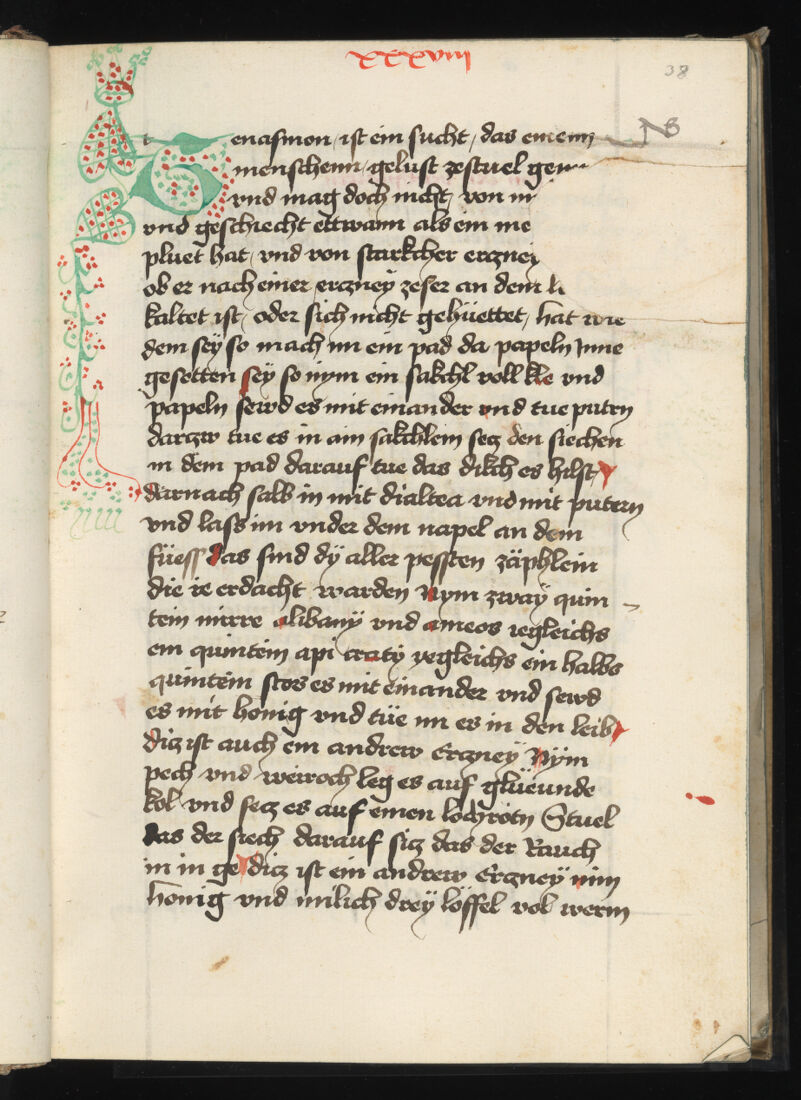 xxxviii
38
NB
Tenasmon / ist ein sucht / das einenn
menschenn / gelust zestuel genn
vnd mag doch nicht / von
vnd geschiecht ettwann als ein me
pluet hat / vnd von starkcher erczney
ob er nach einer / erczney zeser an dem
kaltet ist / oder sich nicht gehüettet / hat wie
dem sey so mach im ein pad da papeln Inne
gesotten sey so nym ein sakchl voll kle vnd
papeln sewd es mit einander vnd tue putrn
darczw tue es in ain sakchlein secz den siechen
in dem pad darauf tue das dikch es hilft
darnach salb in mit dialtea vnd mit putern
vnd lass im vnder dem napel an dem
füess das sind dÿ aller pessten zäphlein
die ie erdacht warden Nym zwaÿ quin
tein mirre alibanÿ vnd ameos iegleichs
ein quintein api croci yegleichs ein halbs
quintein stos es mit einander vnd sewd
es mit honig vnd tüe im es in den leib
dicz ist auch ein andrew Erczneÿ Nÿm
pech vnd weiroch leg es auf glüeunde
kol vnd secz es auf einen lochrotn Stuel
das der siech darauf sicz das der Rauch
in in ge dicz ist ein andrew Erczneÿ nim
honig vnd milich dreÿ löffel vol werm